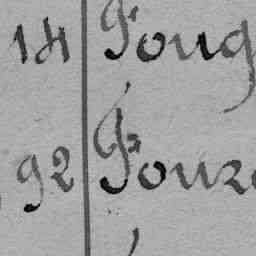 14 Foug
92 Four